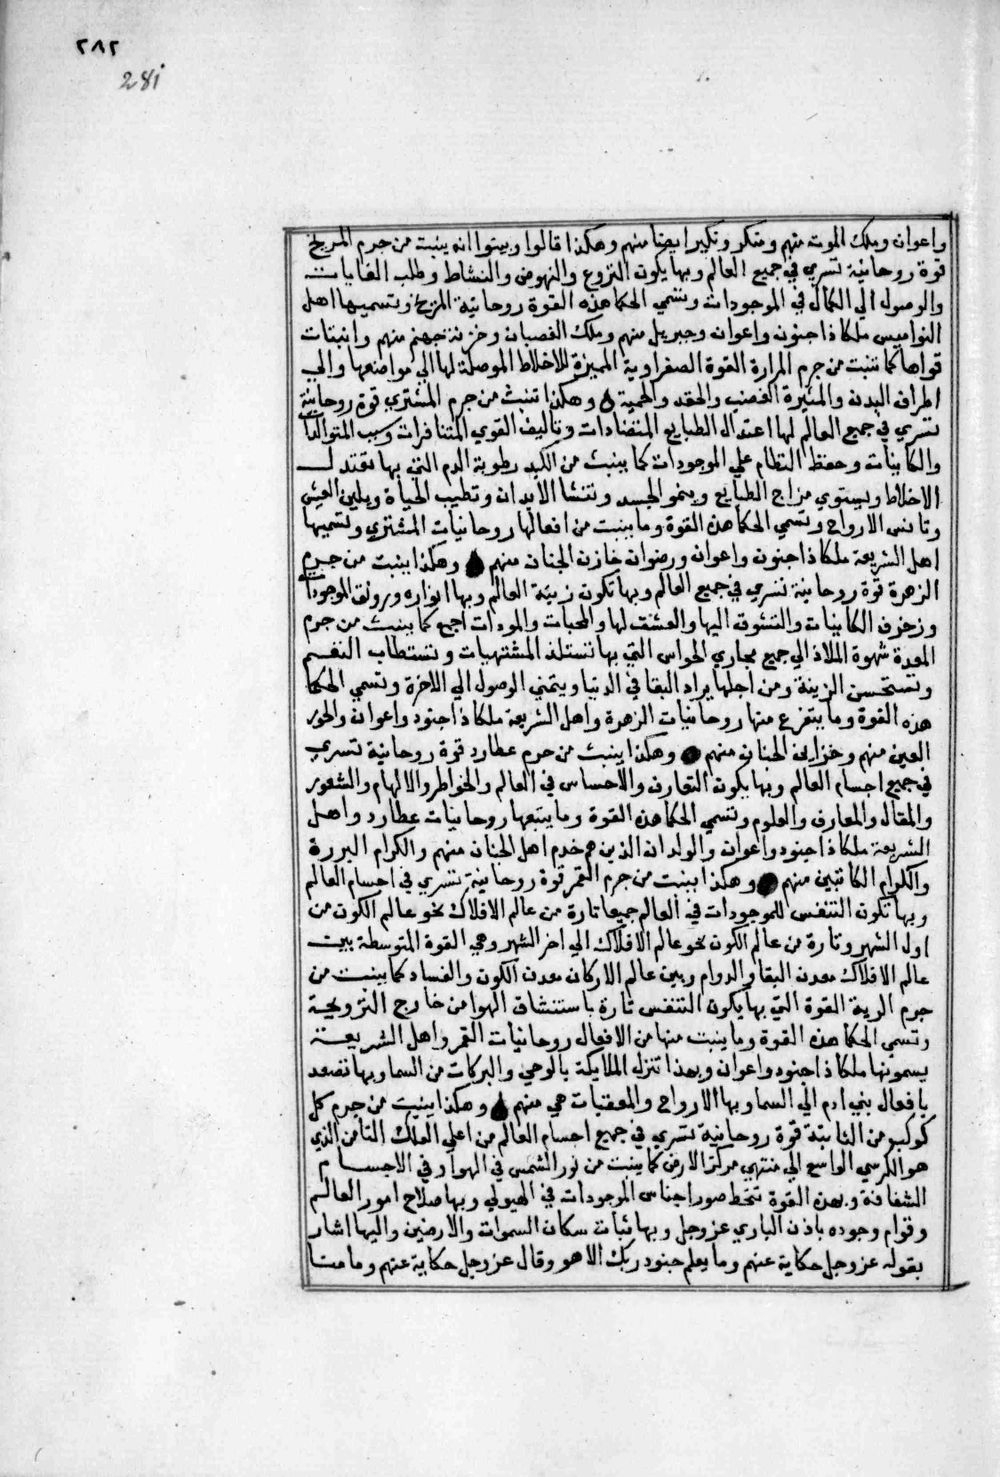 ٢٨٢
281
واعوان وملك الموت منهم ومنكر ونكير ايضا منهم وهكذا قالوا وبينوا انه ينبث من جرم المريخ
قوة روحانية تسري في جميع العالم وبها يكون النزوع والنهوض والنشاط وطلب الغايات
والوصول الي الكمال في الموجودات وتسمي الحكما هذه القوة روحانية المريخ وتسميها اهل
النواميس ملكا ذا جنون واعوان وجبريل منهم وملك الغضبان وخزنة جهنم منهم وانبثاث
قواها كما تنبث من جرم المرارة القوة الصفراوية المميزة للاخلاط الموصلة لها الي مواضعها والي
اطراف البدن والمثيرة الغضب والحقد والحمية وهكذا تنبث من جرم المشتري قوة روحانية
تسري في جميع العالم لها اعتدال الطبايع المتضادات وتاليف القوي المتنافرات وسبب المتوالدات
والكاينات وحفظ النظام علي الموجودات كما ينبث من الكبد رطوبة الدم التي بها تعتدل
الاخلاط ويستوي مزاج الطبايع وينمو الجسد وتنشا الابدان وتطيب الحياة ويلين العيش
وتانس الارواح وتسمي الحكما هذه القوة وما ينبث من افعالها روحانيات المشتري وتسميها
اهل الشريعة ملكا ذا جنون واعوان ورضوان خازن الجنان منهم وهكذا ينبث من جرم
الزهرة قوة روحانية تسري في جميع العالم وبها تكون زينة العالم وبها انواره ورونق الموجودات
وزخرف الكاينات والتشوق اليها والعشق لها والمحبات والمودات اجمع كما ينبث من جرم
المعدة شهوة الملاذ الي جميع مجاري الحواس التي بها تستلذ المشتهيات وتستطاب النغم
وتستحسن الزينة ومن اجلها يراد البقا في الدنيا ويتمني الوصول الي الاخرة وتسمي الحكما
هذه القوة وما يتفرع منها روحانيات الزهرة واهل الشريعة ملكا ذا جنود واعوان والحور
العين منهم وخزاين الجنان منهم وهكذا ينبث من جرم عطارد قوة روحانية تسري
في جميع اجسام العالم وبها يكون التعارف والاحساس في العالم والخواطر والالهام والشعور
والمقال والمعارف والعلوم وتسمي الحكما هذه القوة وما يتبعها روحانيات عطارد واهل
الشريعة ملكا ذا جنود واعوان والولدان الذين هم خدم اهل الجنان منهم والكرام البررة
والكرام الكاتبين منهم وهكذا ينبث من جرم القمر قوة روحانية تسري في اجسام العالم
وبها تكون التنفس للموجودات في العالم جميعا تارة من عالم الافلاك نحو عالم الكون من
اول الشهر وتارة من عالم الكون نحو عالم الافلاك الي اخر الشهر وهي القوة المتوسطة بين
عالم الافلاك معدن البقا والدوام وبين عالم الاركان معدن الكون والفساد كما ينبث من
جرم الرية القوة التي بها يكون التنفس تارة باستنشاق الهوا من خارج الترويحية
وتسمي الحكما هذه القوة وما ينبث منها من الافعال روحانيات القمر واهل الشريعة
يسمونها ملكا ذا جنود واعوان وبهذا تنزل الملايكة بالوحي والبركات من السما وبها تصعد
بافعال بني ادم الي السما وبها الارواح والمعقبات هي منهم وهكذا ينبث من جرم كل
كوكب من الثابتة قوة روحانية تسري في جميع اجسام العالم من اعلي الفلك الثامن الذي
هو الكرسي الواسع الي منتهي مركز الارض كما ينبث من نور الشمس في الهوا وفي الاجسام
الشفافة وبهذه القوة تنخط صور اجناس الموجودات في الهيولي وبها صلاح امور العالم
وقوام وجوده باذن الباري عز وجل وبها ثبات سكان السموات والارضين واليها اشار
بقوله عز وجل حكاية عنهم وما يعلم جنود ربك الا هو وقال عز وجل حكاية عنهم وما منا